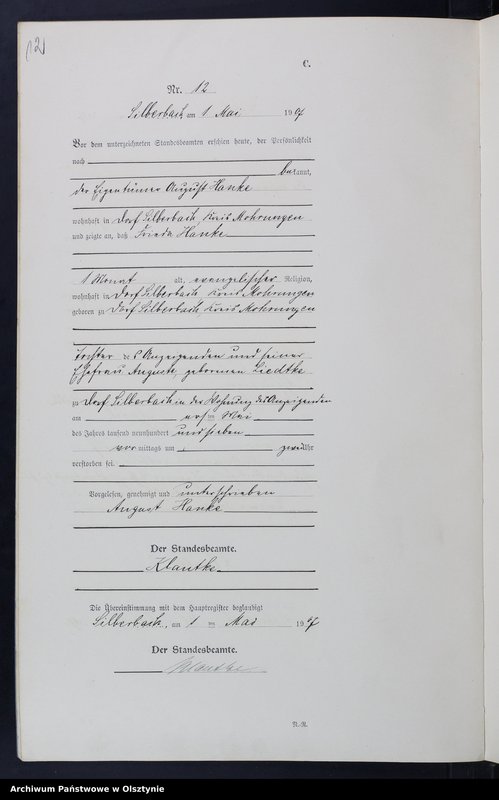 12
C.
Nr. 12
Silberbach am 1 Mai 1907
Vor dem unterzeichneten Standesbeamten erschien heute, der Persönlichkeit
nach
bekannt,
der Eigentümer August Hanke
wohnhaft in Dorf Silberbach, Kreis Mohrungen
und zeigte an, daß Frieda Hanke
1 Monat alt, evangelischer Religion,
wohnhaft in Dorf Silberbach, Kreis Mohrungen
geboren zu Dorf Silberbach, Kreis Mohrungen
Tochter des Anzeigenden und seiner
Ehefrau Auguste, geborenen Liedtke
zu Dorf Silberbach in der Wohnung des Anzeigenden
am ersten Mai
des Jahres tausend neunhundert und sieben
vor mittags um zwei Uhr
verstorben sei.
Vorgelesen, genehmigt und unterschrieben
August Hanke
Der Standesbeamte.
Klautke
Die Übereinstimmung mit dem Hauptregister beglaubigt
Silberbach, am 1 ten Mai 1907
Der Standesbeamte.
Klautke
N.-R.
Archiwum Państwowe w Olsztynie